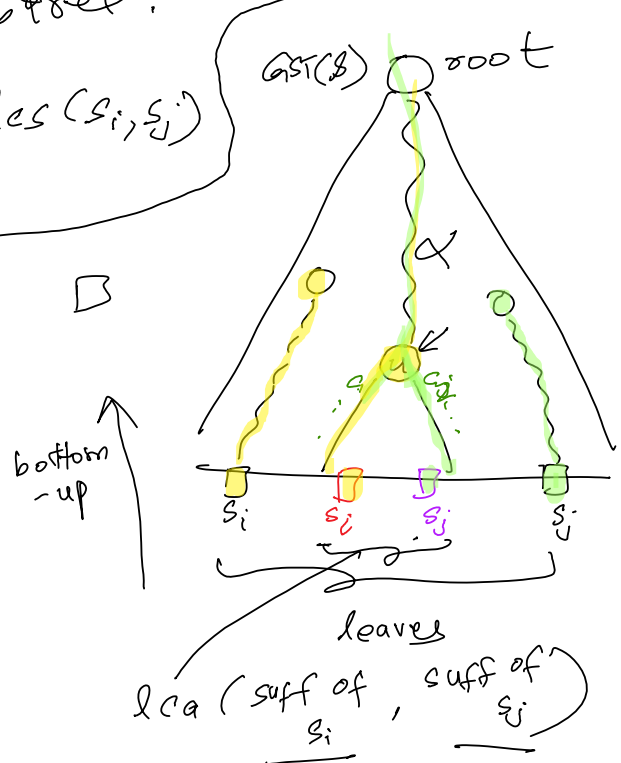 GST($) root
lcs (Si, Sj)
α
u
Si Sj
bottom
-up
Si Si Sj Sj
leaves
lca ( suff of Si , suff of Sj )